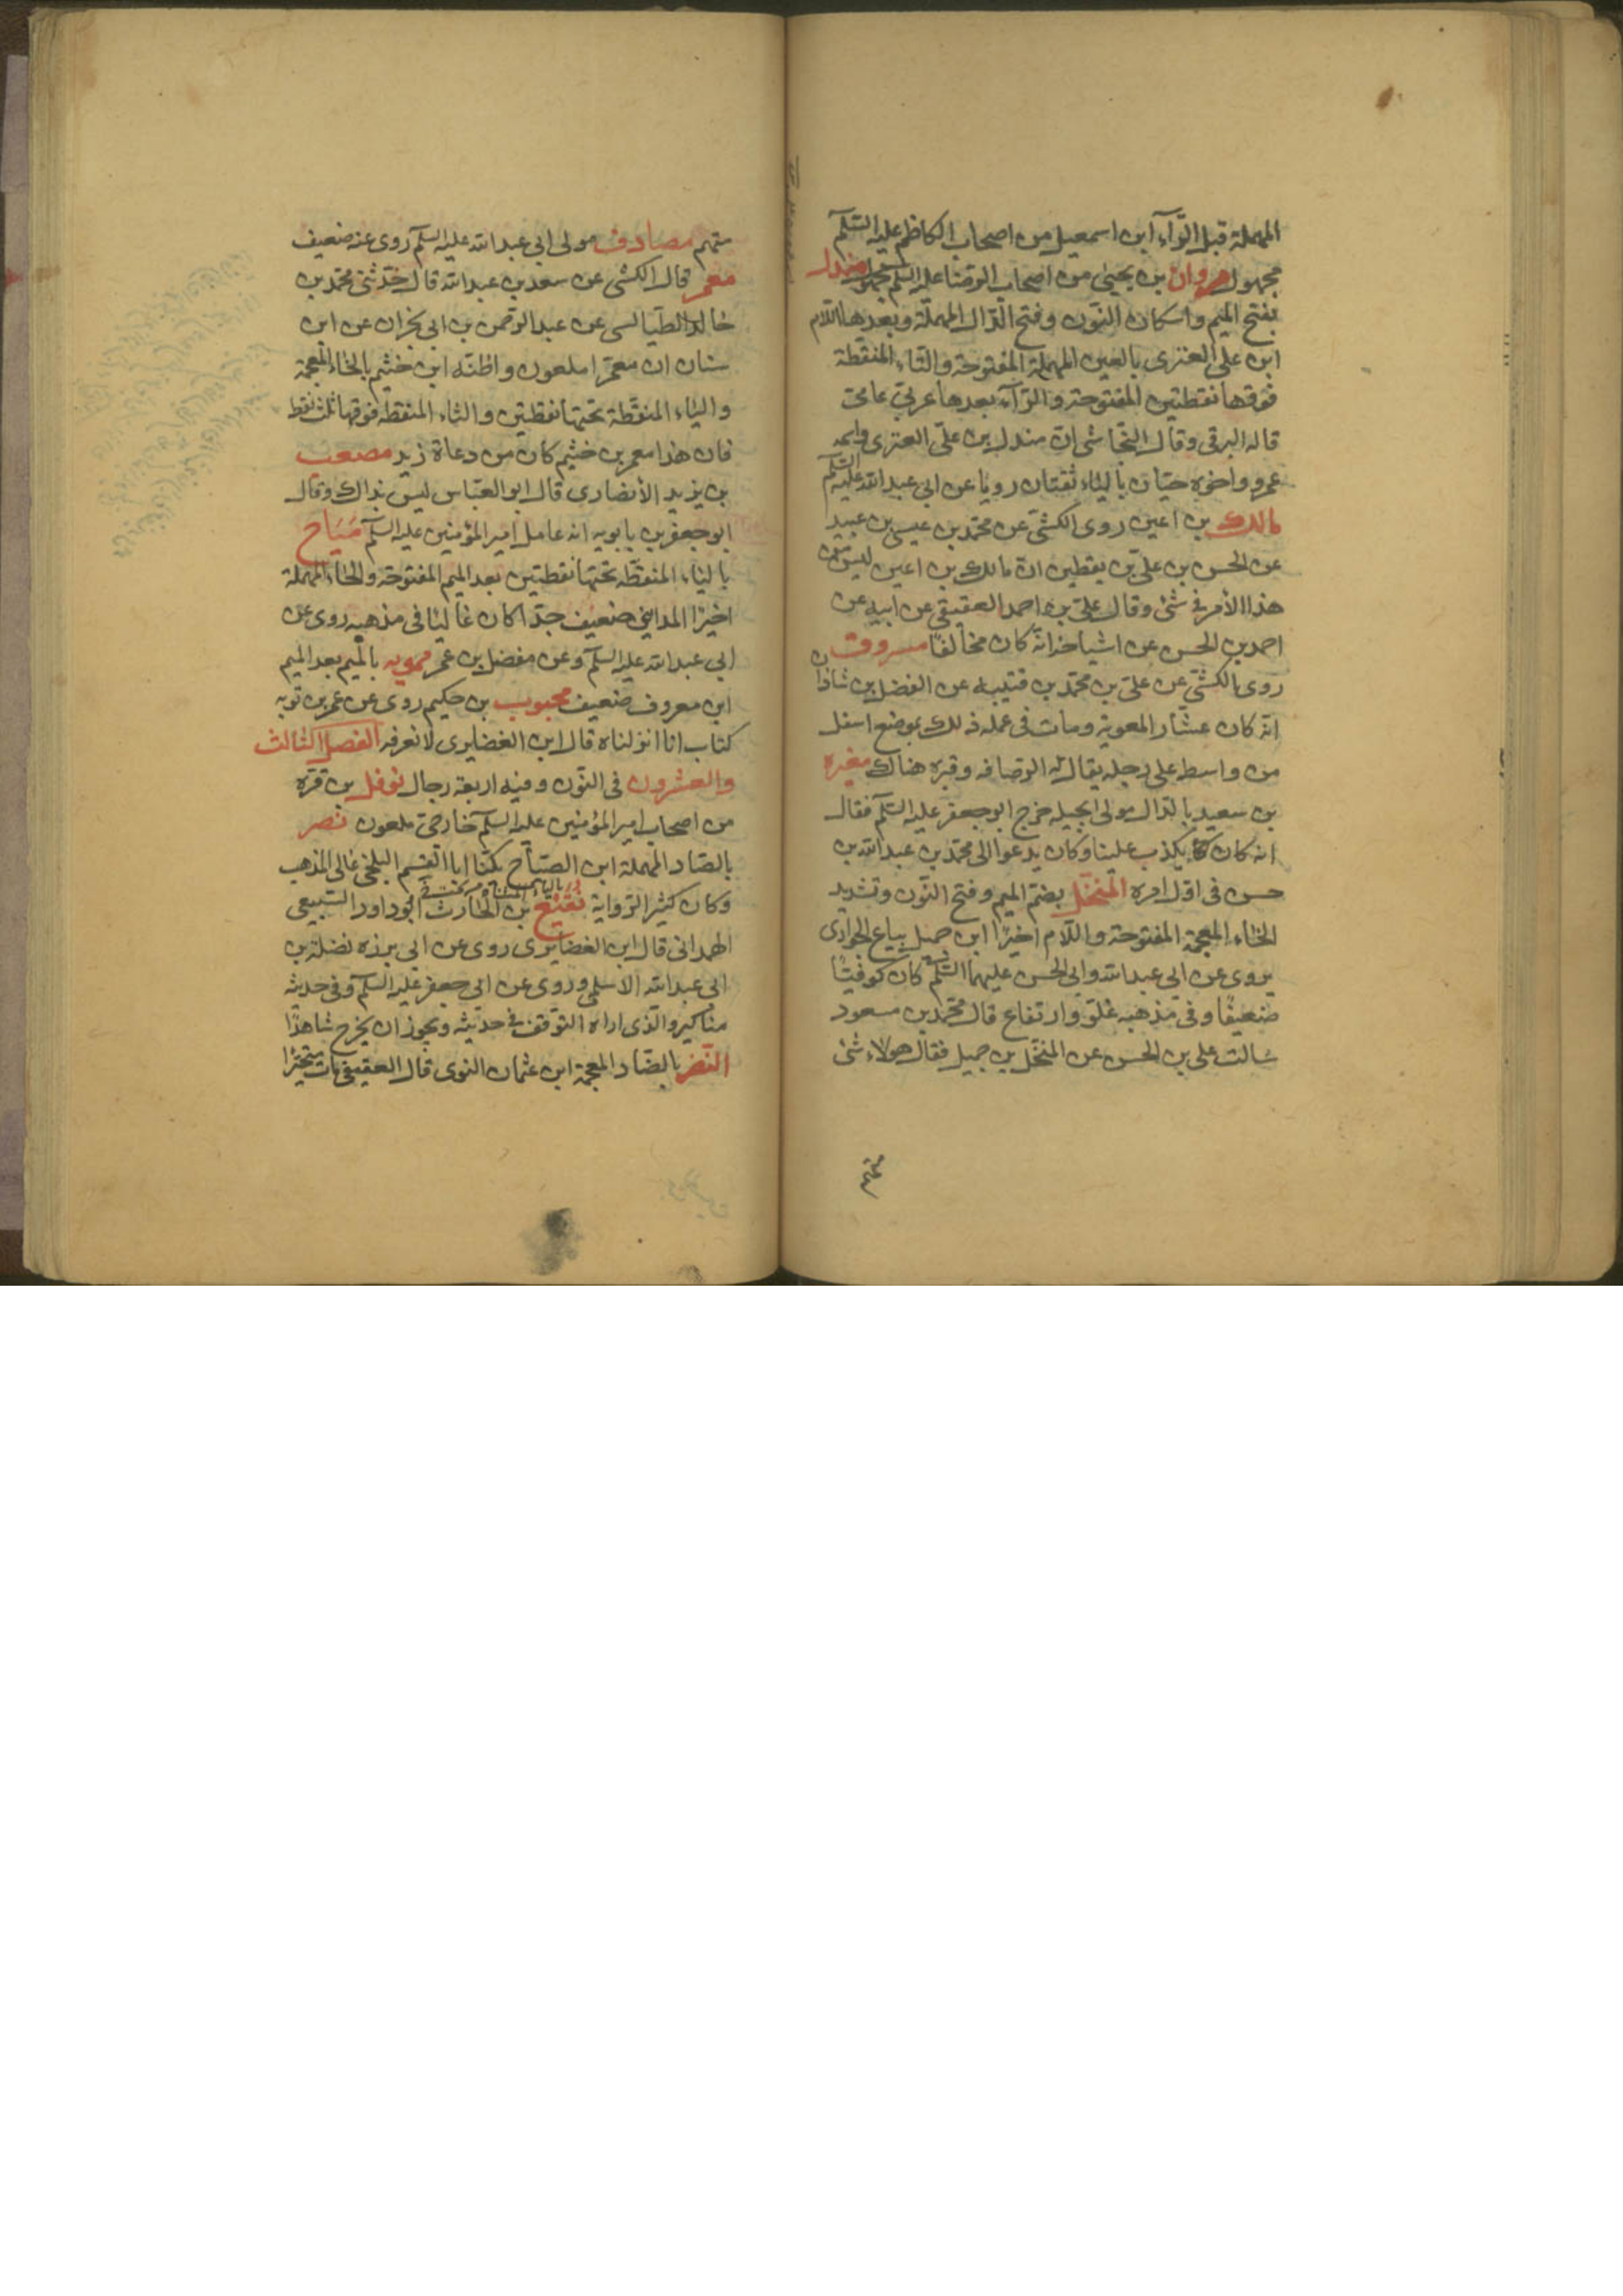 المهملة قبل الرّآء ابن اسمعيل من اصحاب الكاظم عليه السّلم
مجهول مروان بن يحيى من اصحاب الرضا عليه السلم مجهول مندل
بفتح الميم واسكان النّون وفتح الدّال المهملة وبعدها اللّام
ابن علي العتري بالعين المهملة المفتوحة والتاء المنقطة
فوقها نقطتين المفتوحة والرّآء بعدها عربيّ عامّي
قاله البرقي وقال النجّاشي انّ مندل بن عليّ العتري واسمه
عمرو واخوه حيّان بالياء ثقتان رويا عن ابي عبد الله عليه السّلم
مالك بن اعين روى الكشّي عن محمّد بن عيسى بن عبيد
عن الحسن بن عليّ بن يقطين انّ مالك بن اعين ليس من
هذا الأمر في شئ وقال عليّ بن احمد العقيقي عن ابيه عن
احمد بن الحسن عن اشياخه انّه كان مخالفًا مسروق
روى الكشّي عن عليّ بن محمّد بن قتيبه عن الفضل بن شاذان
انّه كان عشّار المعوية ومات في عمله ذلك بموضع اسفل
من واسط على دجله يقال له الرصافه وقبره هناك مغيره
بن سعيد بالدّال مولى بجيله خرج ابو جعفر عليه السّلم فقال
انه كان يكذب علينا وكان يدعو الى محمّد بن عبد الله بن
حسن في اوّل امره المنخّل بضمّ الميم وفتح النّون وتشديد
الخاء المعجمة المفتوحة واللّام اخيرًا ابن جميل بياع الجواري
يروى عن ابي عبد الله وابي الحسن عليهما السّلم كان كوفيّا
ضعيفًا وفي مذهبه غلوّ وارتفاع قال محمّد بن مسعود
سالت علي بن الحسن عن المنخّل بن جميل فقال هولاء شئ
متهم
متهم مصادف مولى ابي عبد الله عليه السلم روى عنه ضعيف
معمر قال الكشّي عن سعد بن عبد الله قال حدّثني محمّد بن
خالد الطيالسي عن عبد الرّحمن بن ابي نجران عن ابن
سنان ان معمّرا ملعون واظنّه ابن خثيم بالخاء المعجمة
والياء المنقّطة تحتها نقطتين والثاء المنقطة فوقها ثلث نقط
فان هذا معمر بن خثيم كان من دعاة زيد مصعب
بن يزيد الأنصاري قال ابو العبّاس ليس بذاك وقال
ابو جعفر بن بابويه انه عامل امير المؤمنين عليه السلم ميّاح
بالياء المنقّطه تحتها نقطتين بعد الميم المفتوحة والحاء المهملة
اخيرًا المدايني ضعيف جدّا كان غاليًا في مذهبه روى عن
ابي عبد الله عليه السّلم وعن مفضل بن عمر ممويه بالميم بعد الميم
ابن معروف ضعيف محبوب بن حكيم روى عن عمر بن توبه
كتاب انا انزلناه قال ابن الغضايرى لا نعرفه الفصل الثالث
والعشرون في النّون وفيه اربعة رجال نوفل بن قرّه
من اصحاب امير المؤمنين عليه السلم خارجيّ ملعون نصر
بالصّاد المهملة ابن الصبّاح يكنّا ابا القسم البلخي غالى المذهب
وكان كثير الرّواية نفيع بن الحارث ابو داود السّبيعي
الهمداني قال ابن الغضايرى روى عن ابي برزه نضلة بن
ابي عبد الله الاسلمي وروى عن ابي جعفر عليه السّلم وفي حديثه
مناكير والّذى اراه التوّقف في حديثه ويجوز ان يخرج شاهدًا
النّضر بالضّاد المعجمة ابن عثمان النوى قال العقيقي مات متحيّرا